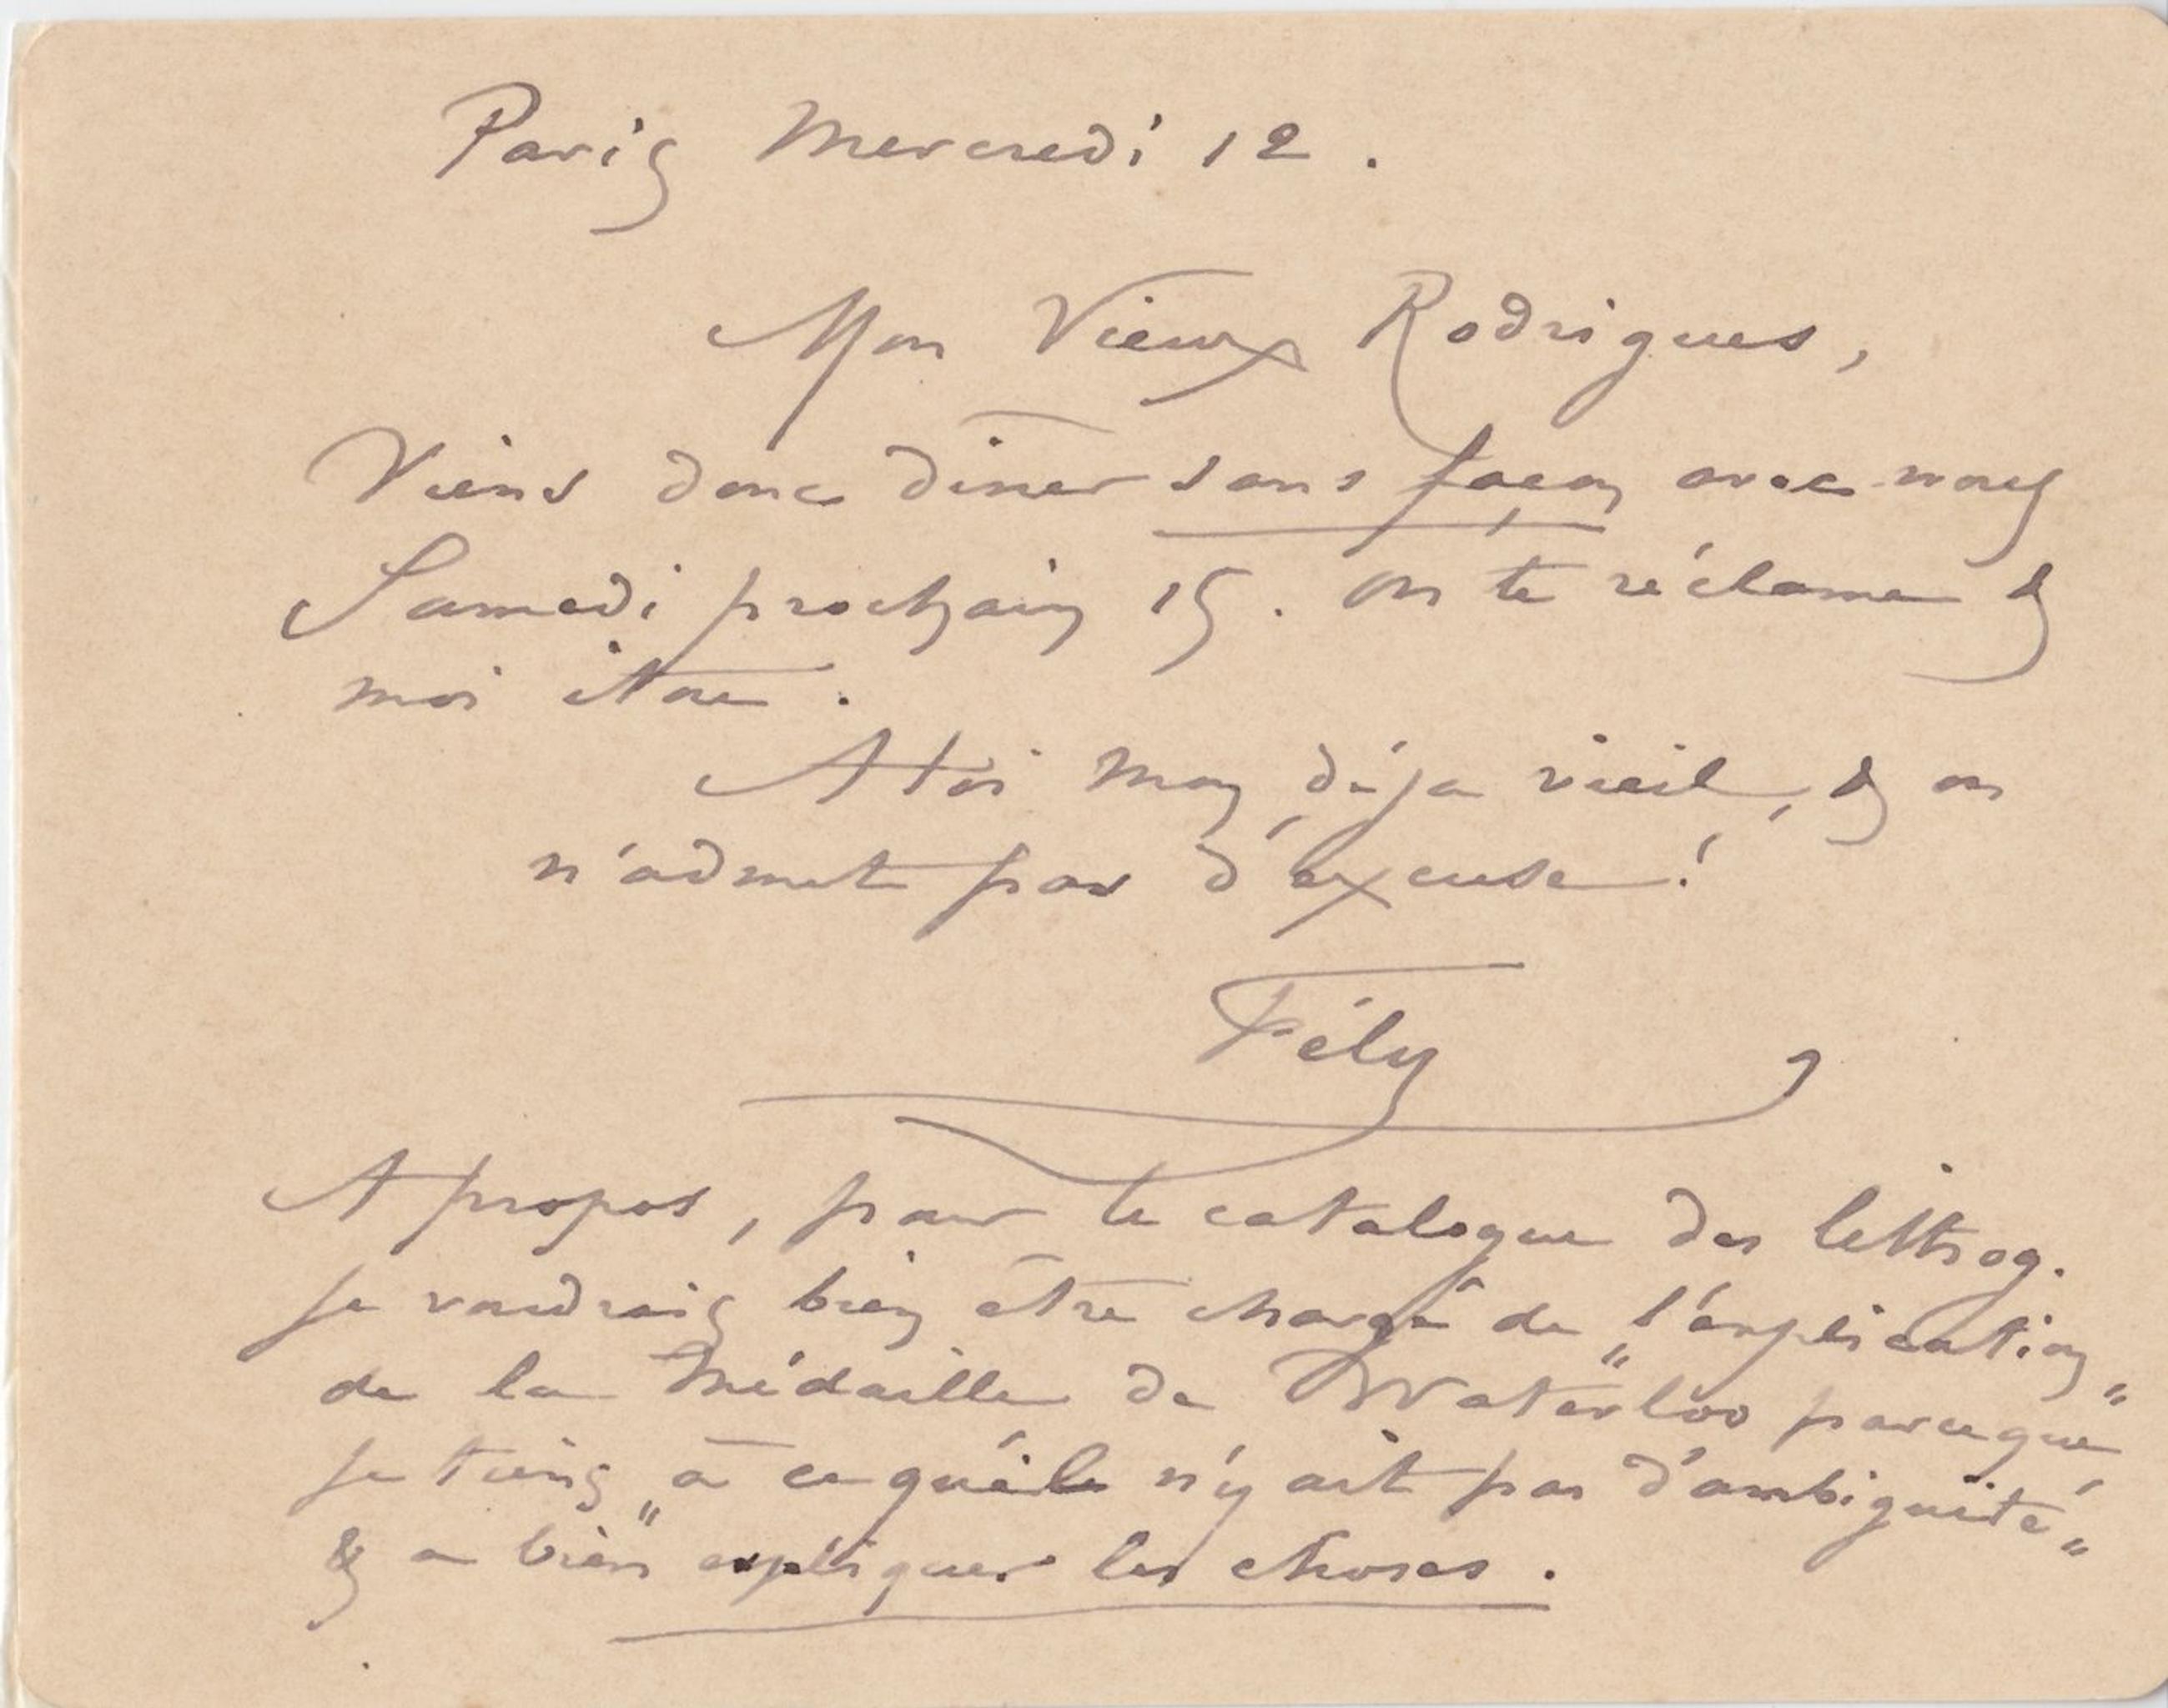 Paris Mercredi 12.
Mon Vieux Rodrigues,
Viens donc dîner sans façon avec nous
Samedi prochain 15. On te réclame &
moi itou.
A toi mon, déja vieil, & on
n'admet pas d'excuse!
Fély
A propos, pour le catalogue des lithog.
je voudrais bien être chargé de „l'explication„
de la Médaille de Waterloo parceque
je tiens „à ce qu'il n'y ait pas d'ambiguité„
& a bien expliquer les choses.